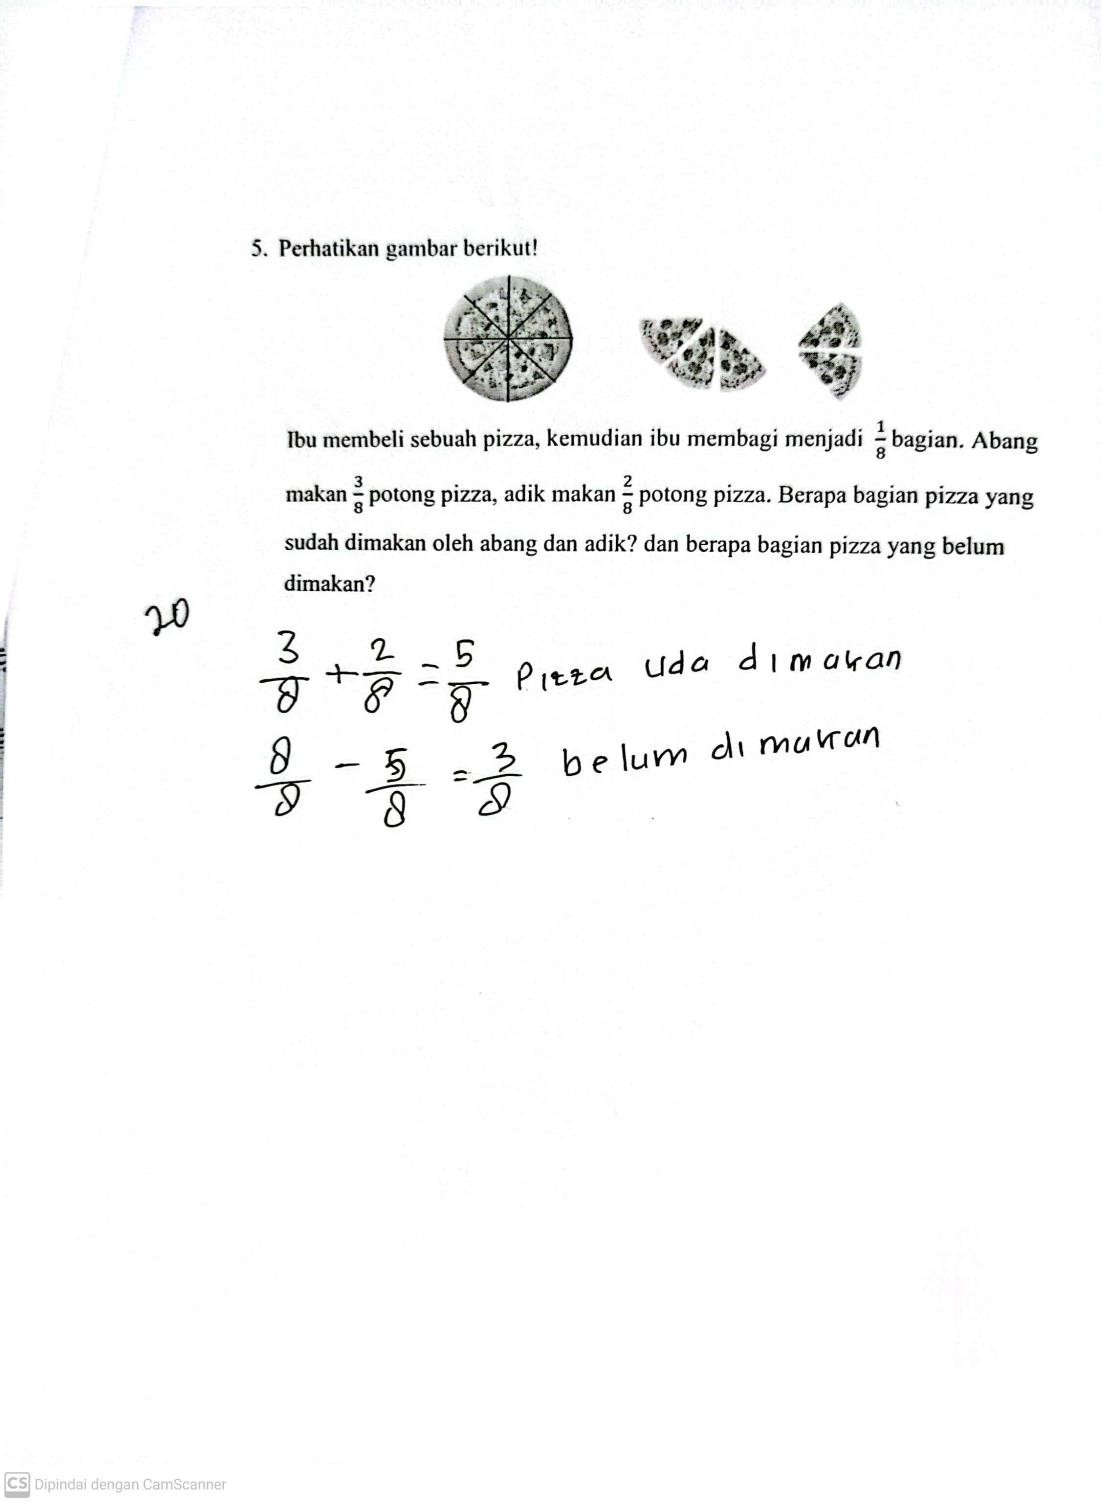 5. Perhatikan gambar berikut!
Ibu membeli sebuah pizza, kemudian ibu membagi menjadi 1/8 bagian. Abang
makan 3/8 potong pizza, adik makan 2/8 potong pizza. Berapa bagian pizza yang
sudah dimakan oleh abang dan adik? dan berapa bagian pizza yang belum
dimakan?
20
3/8 + 2/8 = 5/8 Pizza uda dimakan
8/8 - 5/8 = 3/8 belum dimakan
CS Dipindai dengan CamScanner